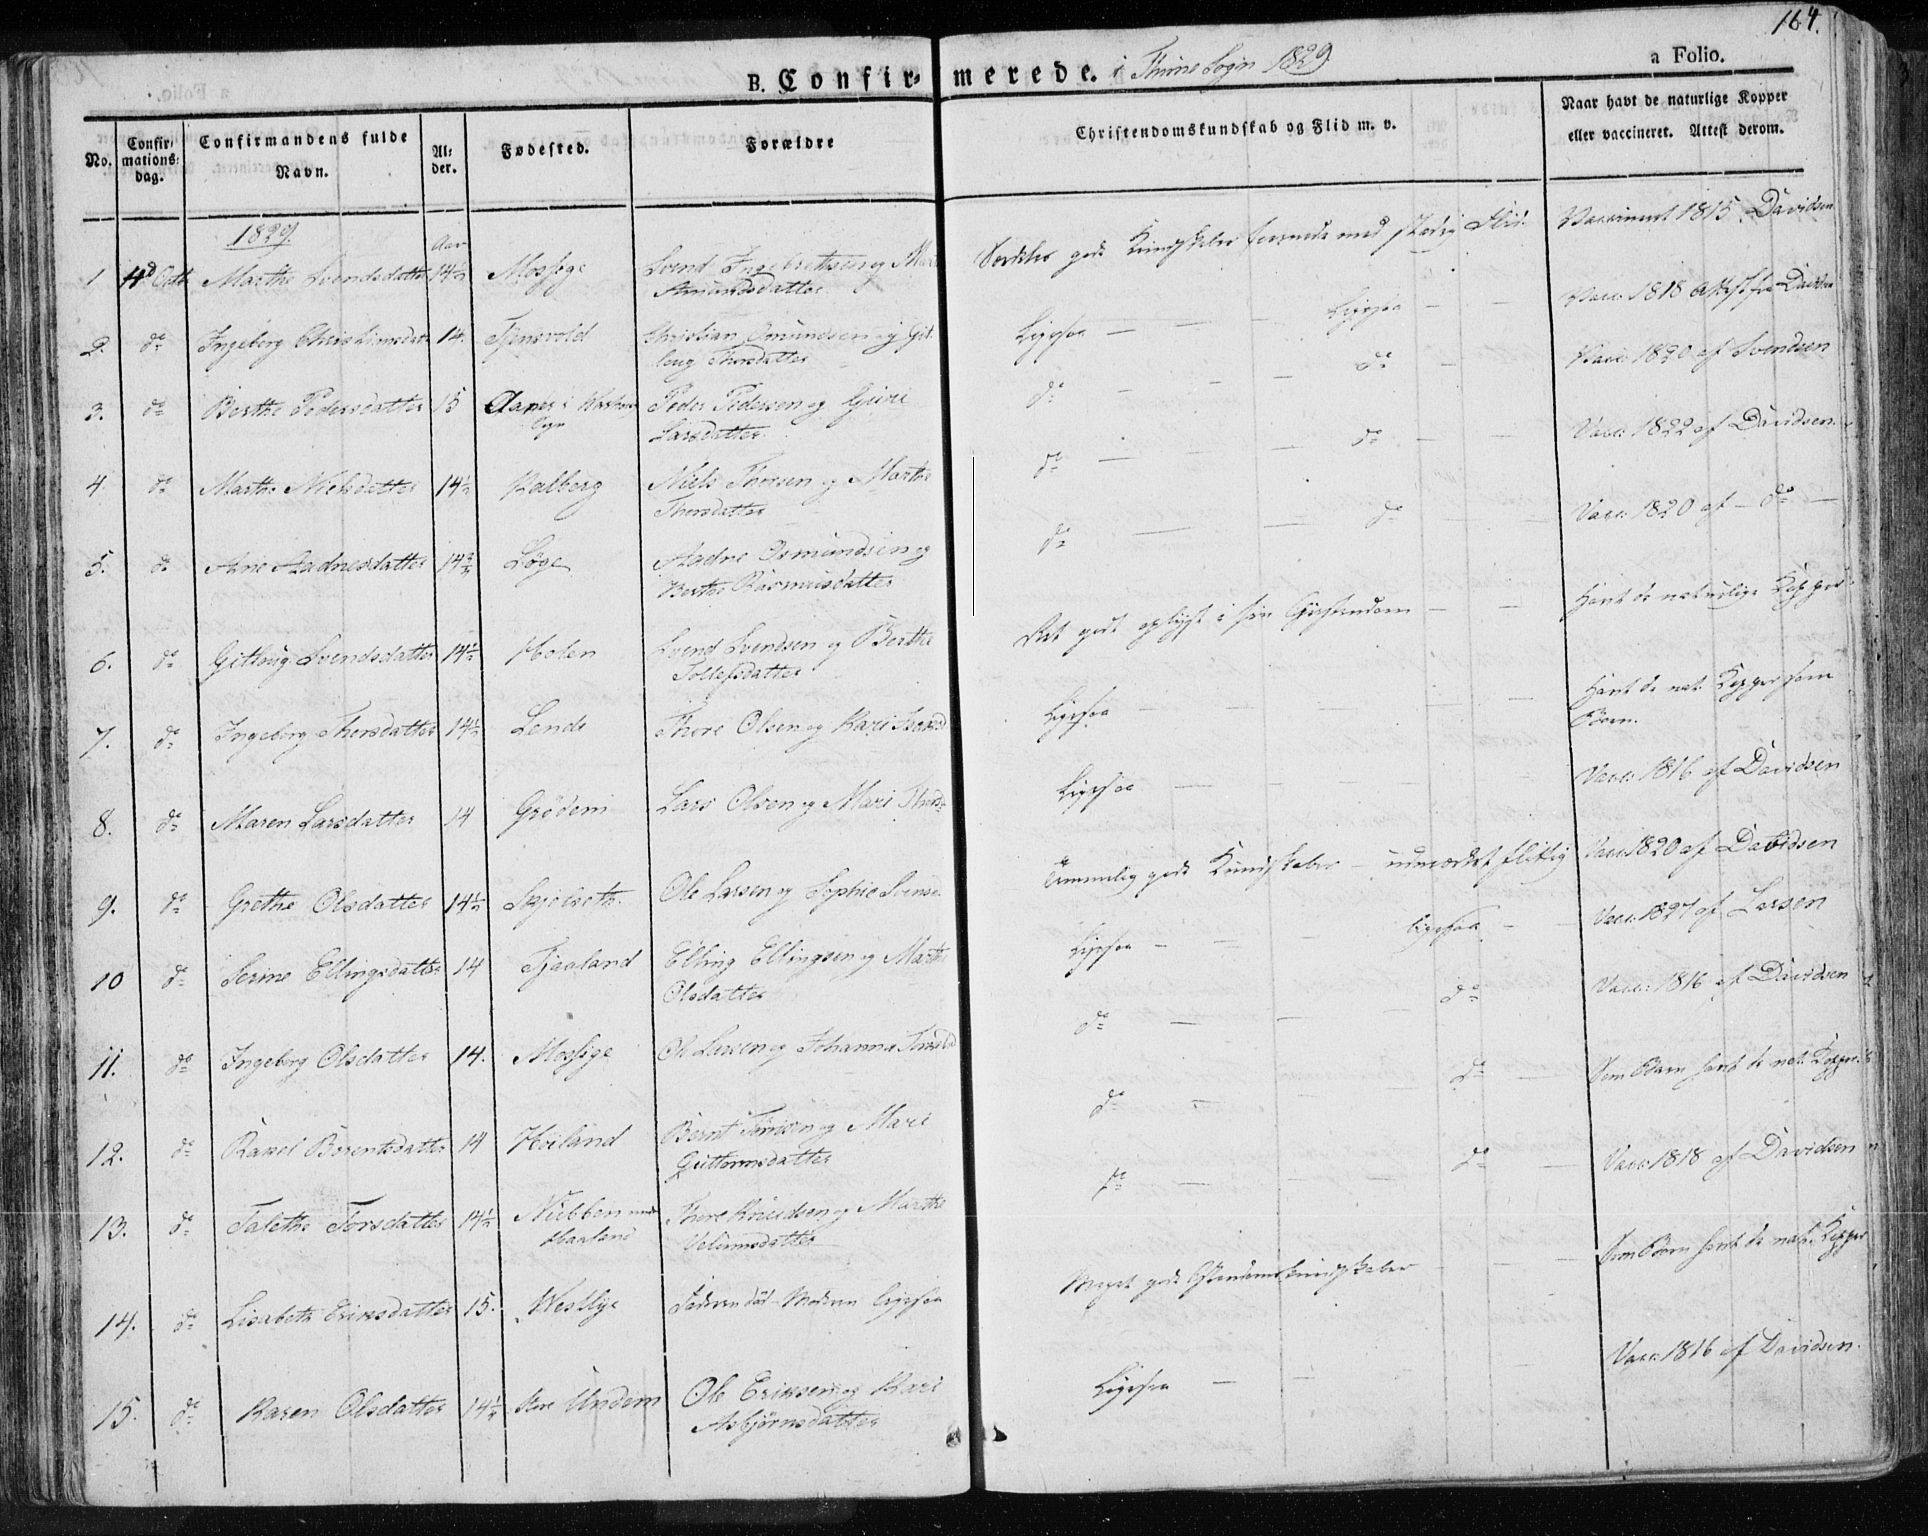 164.
B. Confir- merede. i Thime Sogn 1829
a Folio.
No.
Confirmations-dag.
Confirmandens fulde Navn.
Alder.
Fødested.
Forældre
Christendomskundskab og Flid m. v.
Naar havt de naturlige Kopper eller vaccineret. Attest derom.
1829.
Aar
1 4d Octb Marthe Svendsdatter 14½ Mossige Svend Ingebrethsen og Amundsdatter gode Kundskaber Flid. Vaccineret 1815. Davidsen
2. do Ingeborg 14. Tjensvold Christian Omundsen og Git-
loug Thorsdatter Ligesaa — — — Ligesaa — — Vacc: 1818 Attest fra
3. do Berthe Pedersdatter 15 i Peder Pedersen og
Larsdatter do — — — do — Vacc: 1820 af Svendsen
4. do Marthe Nielsdatter 14½ Kalberg Niels Thorsen og Marthe
Thorsdatter do — — do — — Vacc: 1822 af Davidsen
5. do Ane Aadnesdatter Løge Aadne Osmundsen og
Berthe Rasmusdatter do — — do — — Vacc: 1820 af — do —
6. do Gitloug Svendsdatter 14½ Holen Svend Svendsen og Berthe
Tollefsdatter Ret godt oplyst i sin Christendom — — Havt de naturlige Kopper
7. do Ingeborg Thorsdatter 14½ Lende Thore Olsen og Kari Ligesaa — — Havt de nat. Kopper som
Barn.
8. do Maren Larsdatter 14 Grødem Lars Olsen og Mari Thorsd: Ligesaa — — Vacc: 1816 af Davidsen
9. do Grethe Olsdatter 14½ Ole Larsen og Sophie temmelig gode Kundskaber — flittig Vacc: 1820 af Davidsen
10 do Serine Ellingsdatter 14 Tjaaland Elling Ellingsen og Marthe
Olsdatter Ligesaa — — — ligesaa — Vacc: 1827 af Larsen
11. do Ingeborg Olsdatter 14. Mossige Ole Larsen og Johanna do — — do Vacc: 1816 af Davidsen
12. do Rakel Berentsdatter 14 Høiland Bernt Tønnesen og Mari
Guttormsdatter do — — do — Som Barn havt de nat: Kopper
13. do Talethe Torsdatter 14½ Nubben under
Haaland Thore Knudsen og Marthe
do — — do — Vacc: 1818 af Davidsen
14. do Lisabeth Eriksdatter 15. Westlye Faderen död — Moderen ligesaa Meget gode Christendomskundskaber — Som Barn havt de nat: Kopper
15. do Karen Olsdatter 14½ Store Undem Ole Eriksen og Kari
Asbjørnsdatter Ligesaa — — Vacc: 1816 af Davidsen.